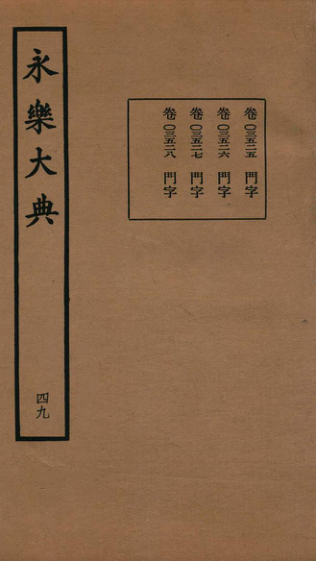 永樂大典
四九
卷〇三五二五 門字
卷〇三五二六 門字
卷〇三五二七 門字
卷〇三五二八 門字